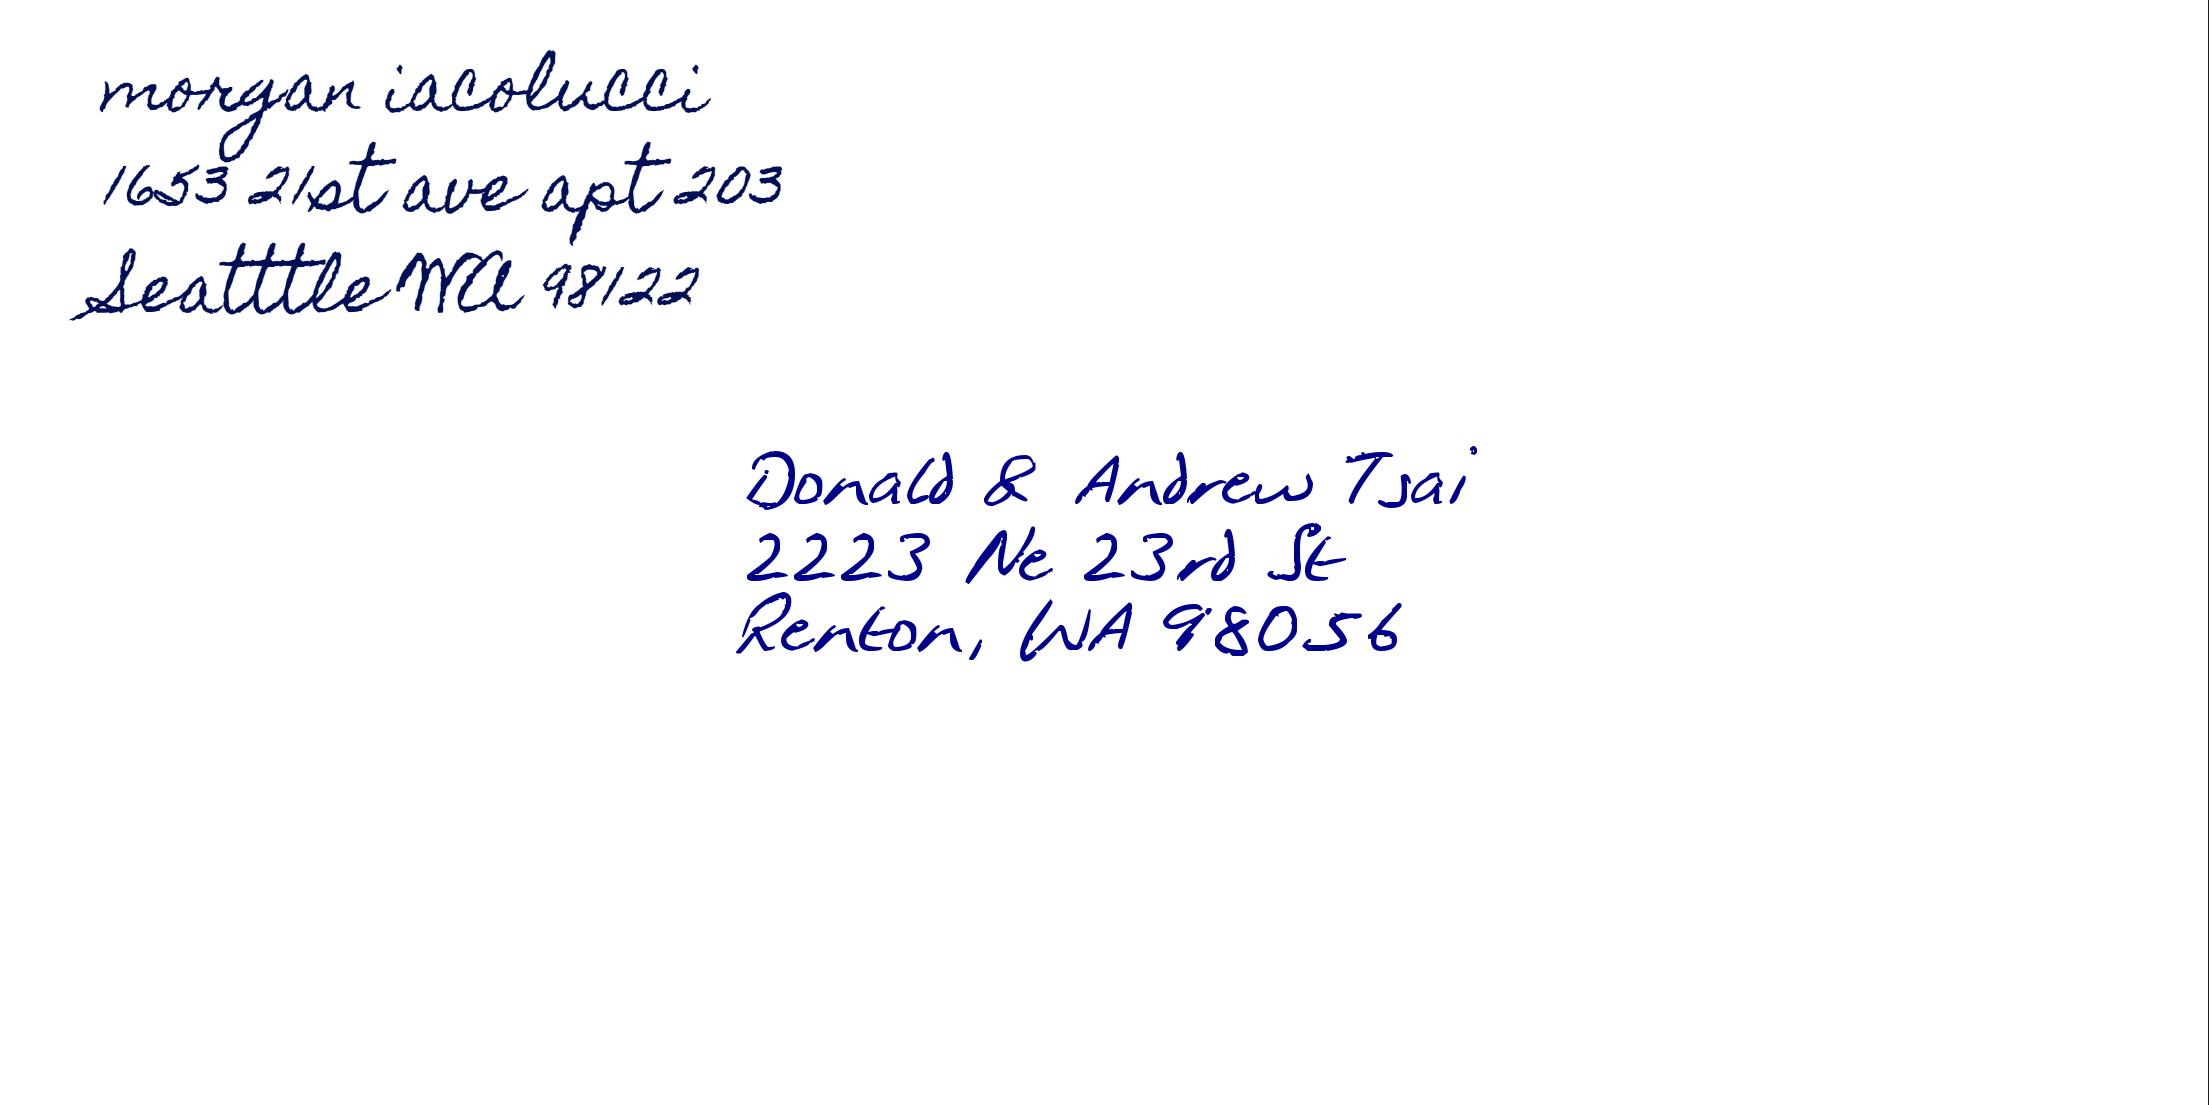 morgan iacolucci
1653 21st ave apt 203
Seatttle WA 98122
Donald & Andrew Tsai
2223 Ne 23rd St
Renton, WA 98056